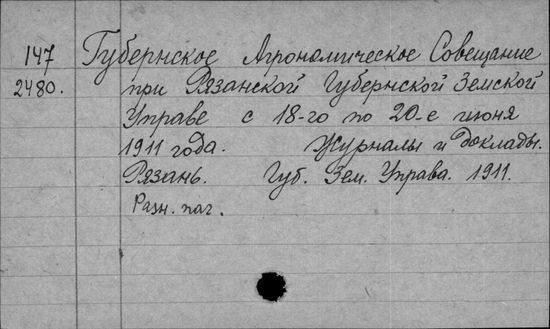 147 Губернское Агрономическое Совещание
2480. при Рязанской Губернской Земской
Управе с 18-го по 20-е июня
1911 года. Журналы и Доклады.
Рязань. Губ. Зем. Управа. 1911.
Разн. паг.